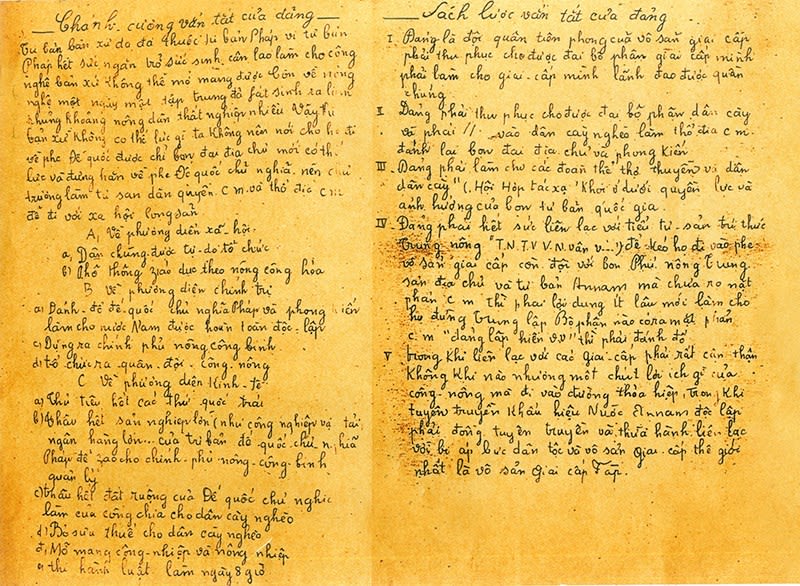 Chanh cương vắn tắt của đảng
Tư bản bản xứ do đã thuộc tư bản Pháp vì tư bản
Pháp hết sức ngăn trở sức sinh
làm cho công
nghệ bản xứ không thể mở mang được Còn về nông
nghệ một ngày một tập trung đã fát sinh ra
khủng khoảng nông dân thất nghiệp nhiều Vậy tư
bản xứ không có thế lực gì ta không nên nói cho họ đi
về phe Đế quốc được chỉ bọn đại địa chủ mới có thế
lực và đứng hẳn về phe Đế quốc chủ nghĩa nên chủ
trường làm tư sản dân quyền C m và thổ địa C m
để đi với xã hội
A, Về phương diện xã-hội
a, Dân chúng được tự-do tổ chức
b) Phổ thông záo dục theo nông công hóa
B Về phương diện chính trị
a) Đánh-đổ đế-quốc chủ nghĩa Pháp và phong kiến
làm cho nước Nam được hoàn toàn độc-lập
c) Dựng ra chính phủ nông công binh
d) tổ chức ra quân-đội công-nông
C Về phương diện Kinh-tế
a) Thủ tiêu hết các thứ quốc trái
b) thâu hết sản nghiệp lớn (như công nghiệp vận tải
ngân hàng lớn... của tư bản đế quốc chủ nghĩa
Pháp để zao cho chính-phủ nông-công-binh
quản lý
c) thâu hết đất ruộng của Đế quốc chủ nghĩa
làm của công chia cho dân cày nghèo
d) Bỏ sưu thuế cho dân cày nghèo
đ) Mở mang công-nghiệp và nông nghiệp
e) thi hành luật làm ngày 8 giờ
Sách lược vắn tắt của đảng
I. Đảng là đội quân tiên phong của vô sản giai cấp
phải thu phục cho được đại bộ phận giai cấp mình
phải làm cho giai-cấp mình lãnh đạo được quần
chúng
II Đảng phải thu phục cho được đại bộ phận dân cày
và phải // vào dân cày nghèo làm thổ địa c m.
đánh lại bọn đại địa chủ và phong Kiến
III Đảng phải làm cho các đoàn thể thợ thuyền và dân
dân cày" (Hội Hợp tác xã) Khỏi ở dưới quyền lực và
ảnh hưởng của bọn tư bản quốc gia.
IV Đảng phải hết sức liên lạc với tiểu tư-sản trí thức
trung nông "T.N.T.V V.N vân v...) để kéo họ đi vào phe
vô sản giai cấp còn đối với bọn Phú nông Trung
sản địa chủ và tư bản Annam mà chưa rõ mặt
phản C m thì phải lợi dụng ít lâu mới làm cho
họ đứng trung lập Bộ phận nào có ra mặt phản
c. m "đảng lập hiến v.v" thì phải đánh đổ
V trong khi liên lạc với các giai-cấp phải rất cẩn thận
Không khi nào nhường một chút lợi ích gì của
công-nông mà đi vào đường thỏa hiệp, trong Khi
tuyên truyền Khẩu hiệu Nước Annam độc lập
phải đồng tuyên truyền và thừa hành liên lạc
với bị áp bức dân tộc và vô sản giai cấp thế giới
nhất là vô sản giai cấp Fáp.